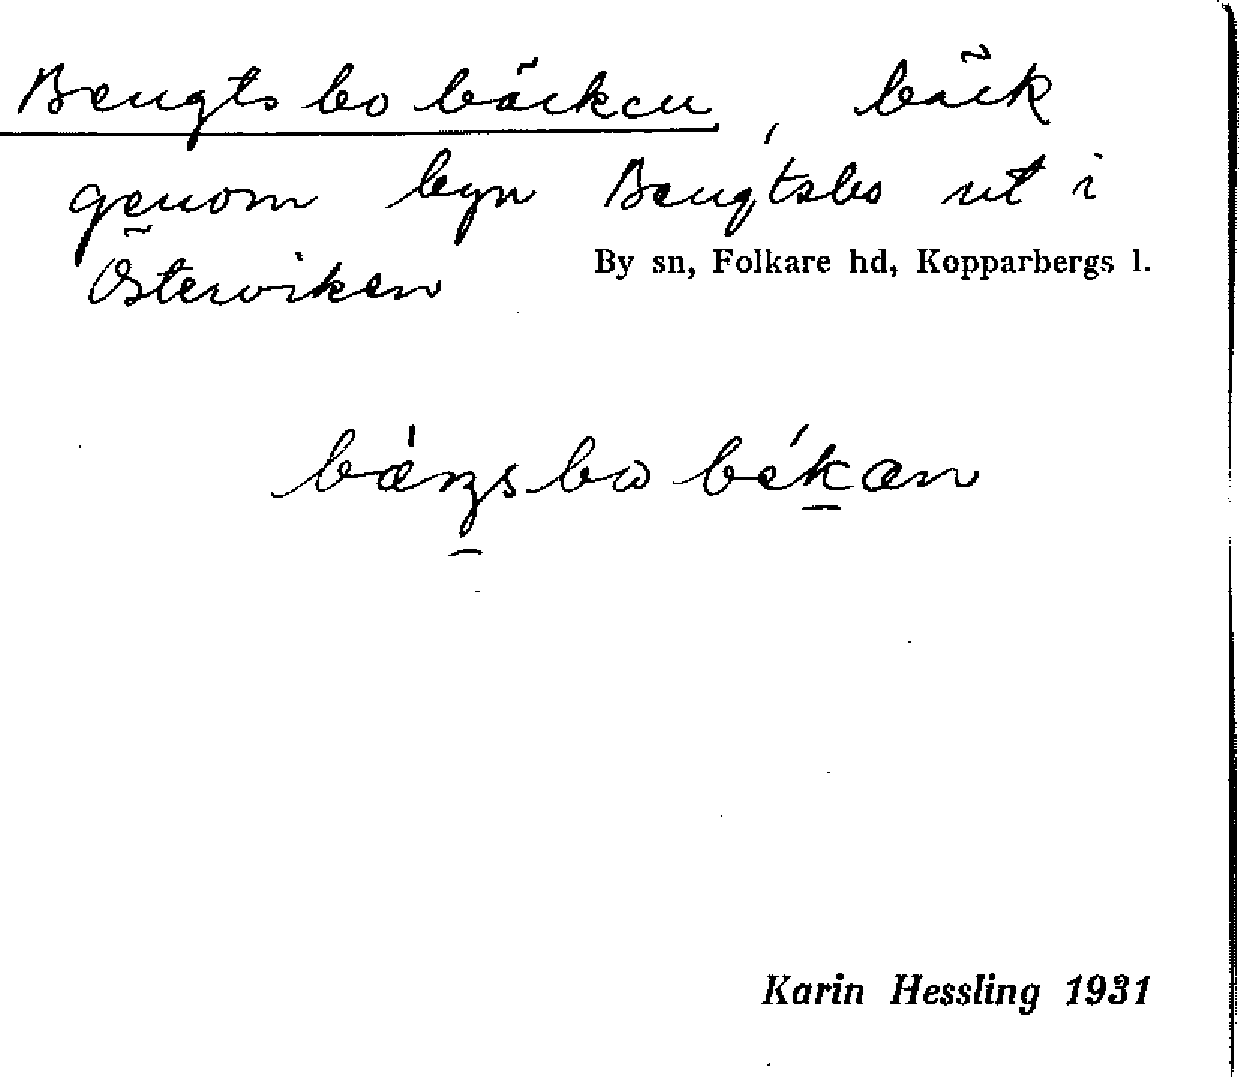 Bengtsbobäcken, bäck
genom byn Bengtsbo ut i
Österviken
By sn, Folkare hd, Kopparbergs l.
Karin Hessling 1931